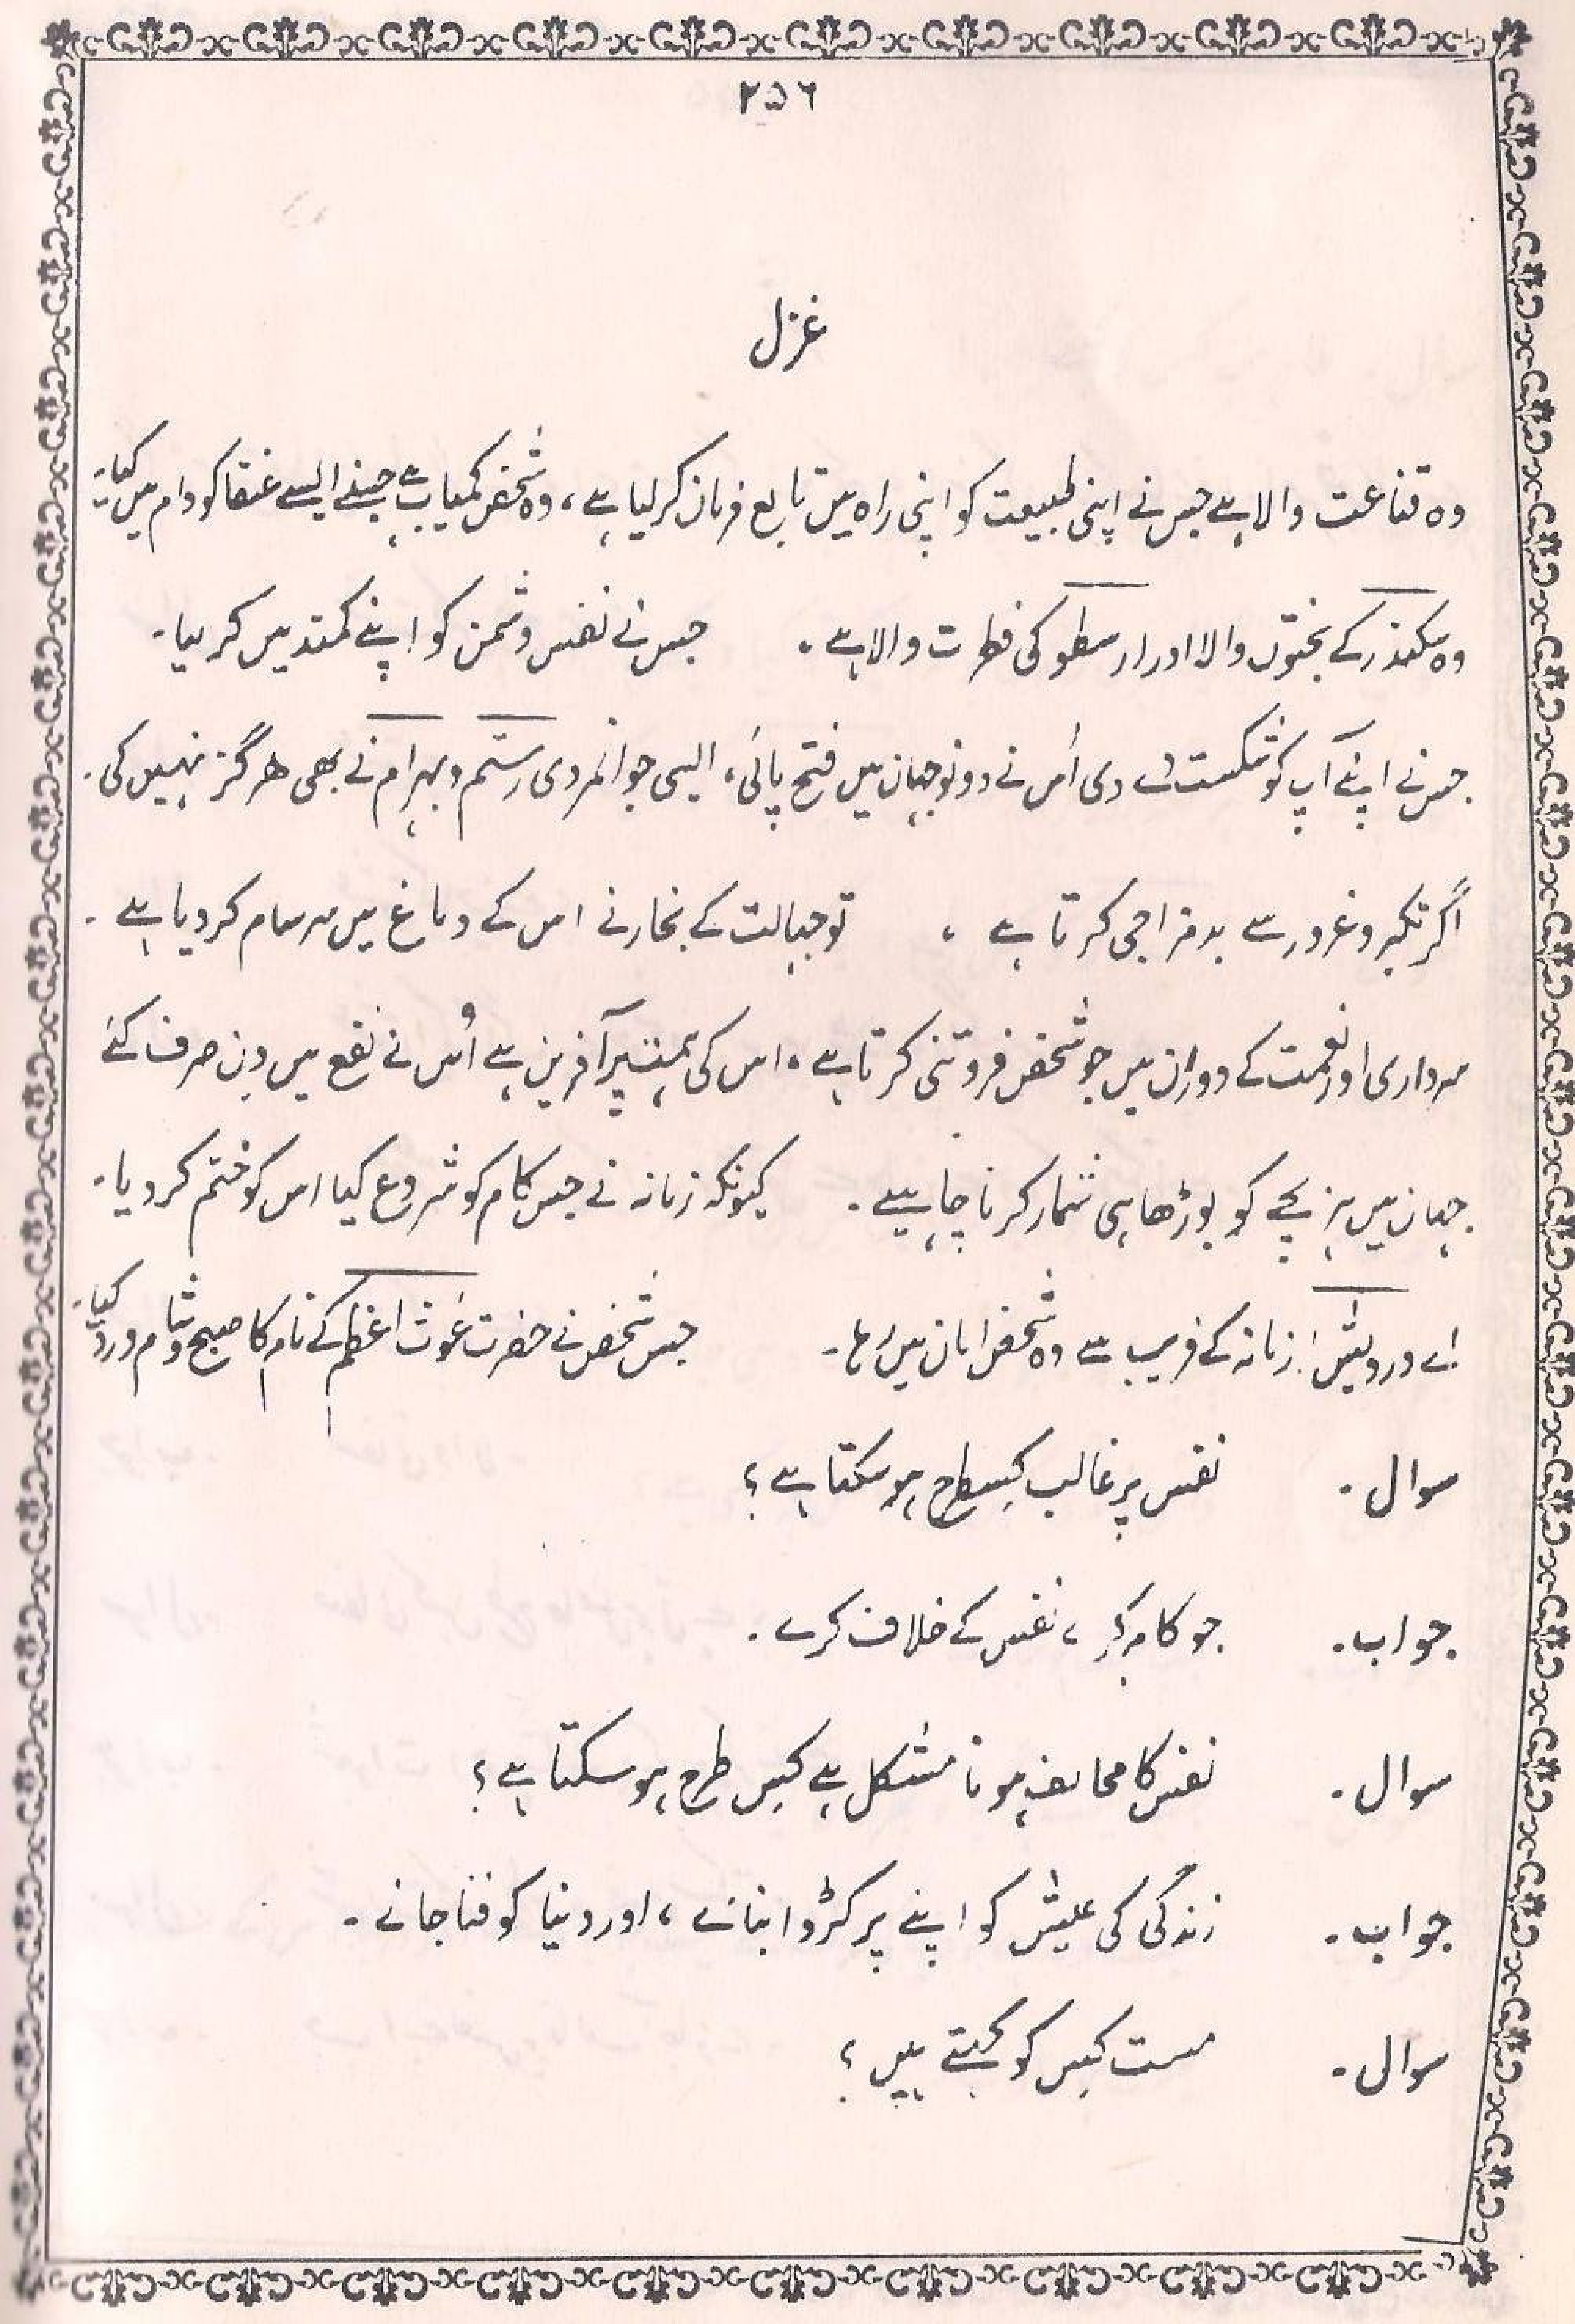 ۲۵۶
غزل
وہ قناعت والا ہے جس نے اپنی طبیعت کو اپنی راہ میں تابع فرمان کر لیا ہے، وہ شخص کمیاب ہے جسنے ایسے عنقا کو دام میں کیا۔
وہ سکندر کے بختوں والا اور ارسطو کی فطرت والا ہے۔ جس نے نفس دشمن کو اپنے کمند میں کر لیا۔
جس نے اپنے آپ کو شکست دی اُس نے دونو جہان میں فتح پائی، ایسی جوانمردی رستم و بہرام نے بھی ھرگز نہیں کی۔
اگر تکبر و غرور سے بدمزاجی کرتا ہے ، تو جہالت کے بخار نے اس کے دماغ میں سرسام کر دیا ہے ۔
سرداری اور نعمت کے دوران میں جو شخص فروتنی کرتا ہے، اس کی ہمت پر آفرین ہے اُس نے نفع میں دن صرف کئے
جہان میں ہر بچے کو بوڑھا ہی شمار کرنا چاہیے ۔ کیونکہ زمانہ نے جس کام کو شروع کیا اس کو ختم کر دیا۔
اے درویش! زمانہ کے فریب سے وہ شخص امان میں رہا۔ جس شخص نے حضرت غوث اعظم کے نام کا صبح و شام ورد کیا۔
سوال ۔ نفس پر غالب کسطرح ہو سکتا ہے ؟
جواب ۔ جو کام کرے ، نفس کے خلاف کرے ۔
سوال ۔ نفس کا مخالف ہونا مشکل ہے کس طرح ہو سکتا ہے ؟
جواب ۔ زندگی کی عیش کو اپنے پر کڑوا بنائے ، اور دنیا کو فنا جانے ۔
سوال ۔ مست کس کو کہتے ہیں ؟